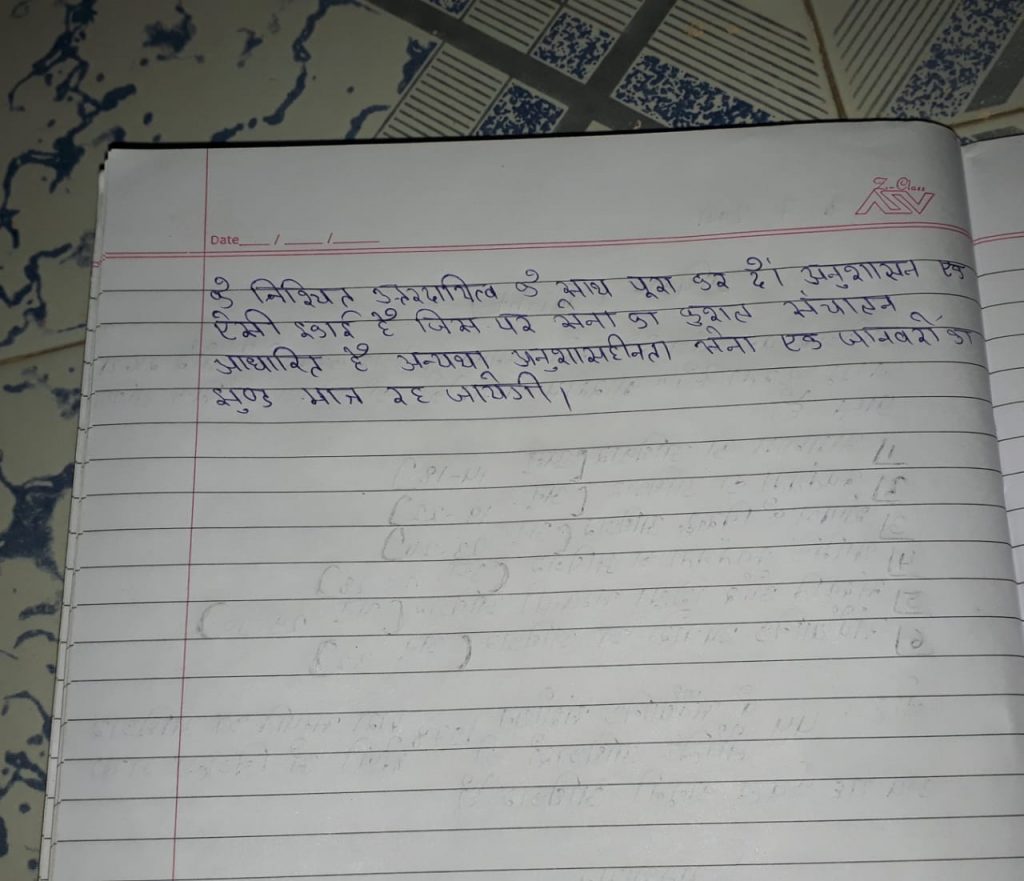 Date___ / ___ /___
के निश्चित उत्तरदायित्व के साथ पूरा कर दें। अनुशासन एक
ऐसी इकाई है जिस पर सेना का कुशल संचालन
आधारित है अन्यथा अनुशासहीनता सेना एक जानवरों का
झुण्ड मात्र रह जायेगी।